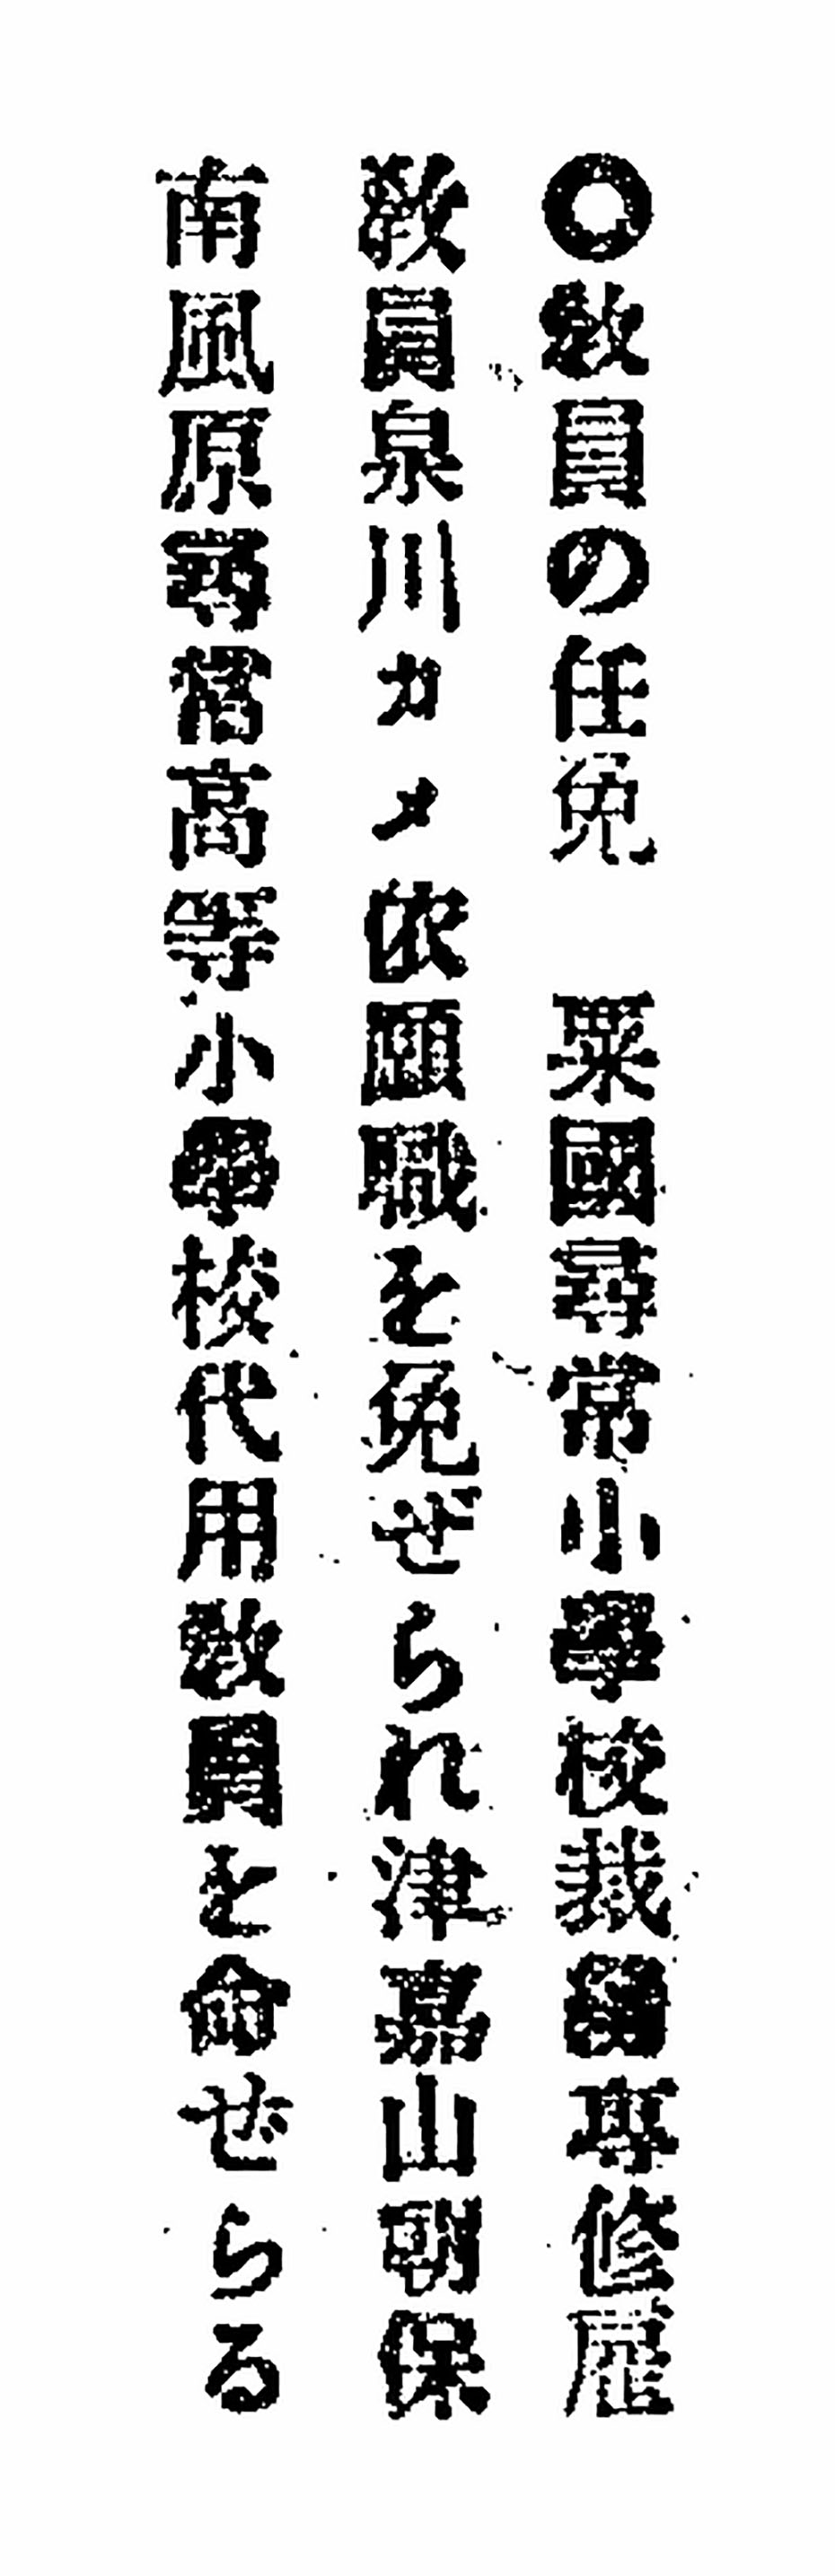 ○敎員の任免　粟國尋常小學校裁縫專修雇
敎員泉川カメ依願職を免ぜられ津嘉山朝保
南風原尋常高等小學校代用敎員を命ぜらる